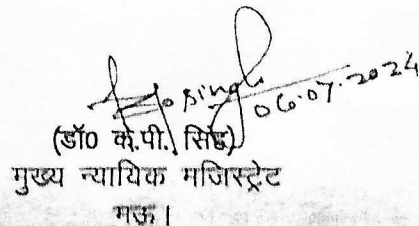 singh
06.07.2024
(डॉ0 के.पी. सिंह)
मुख्य न्यायिक मजिस्ट्रेट
मऊ।